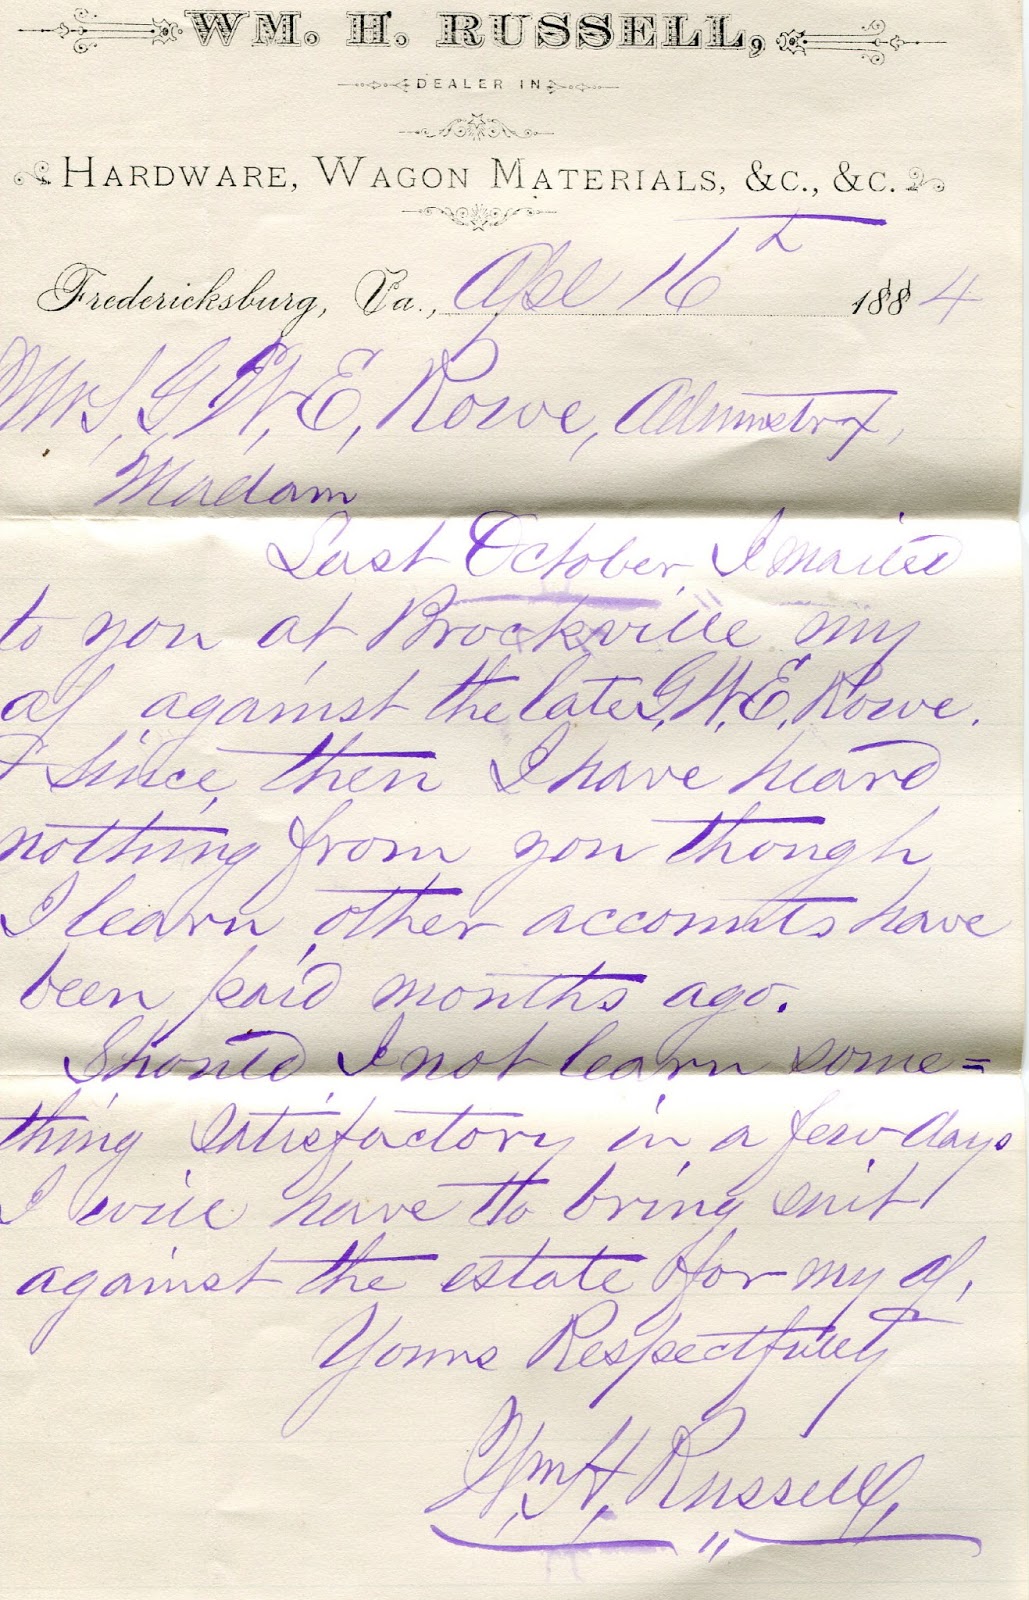 WM. H. RUSSELL,
DEALER IN
HARDWARE, WAGON MATERIALS, &C., &C.
Fredericksburg, Va., Apl 16th 1884
Mrs, G, W, E, Rowe, Adminstrx,
Madam
Last October, I mailed
to you at Brockville my
a/c against the late G, W, E, Rowe.
& since, then I have heard
nothing from you though
I learn, other accounts have
been paid months ago.
Should I not learn some=
thing satisfactory in a few days
I will have to bring suit
against the estate for my a/c,
Yours Respectfully
Wm, H, Russell,